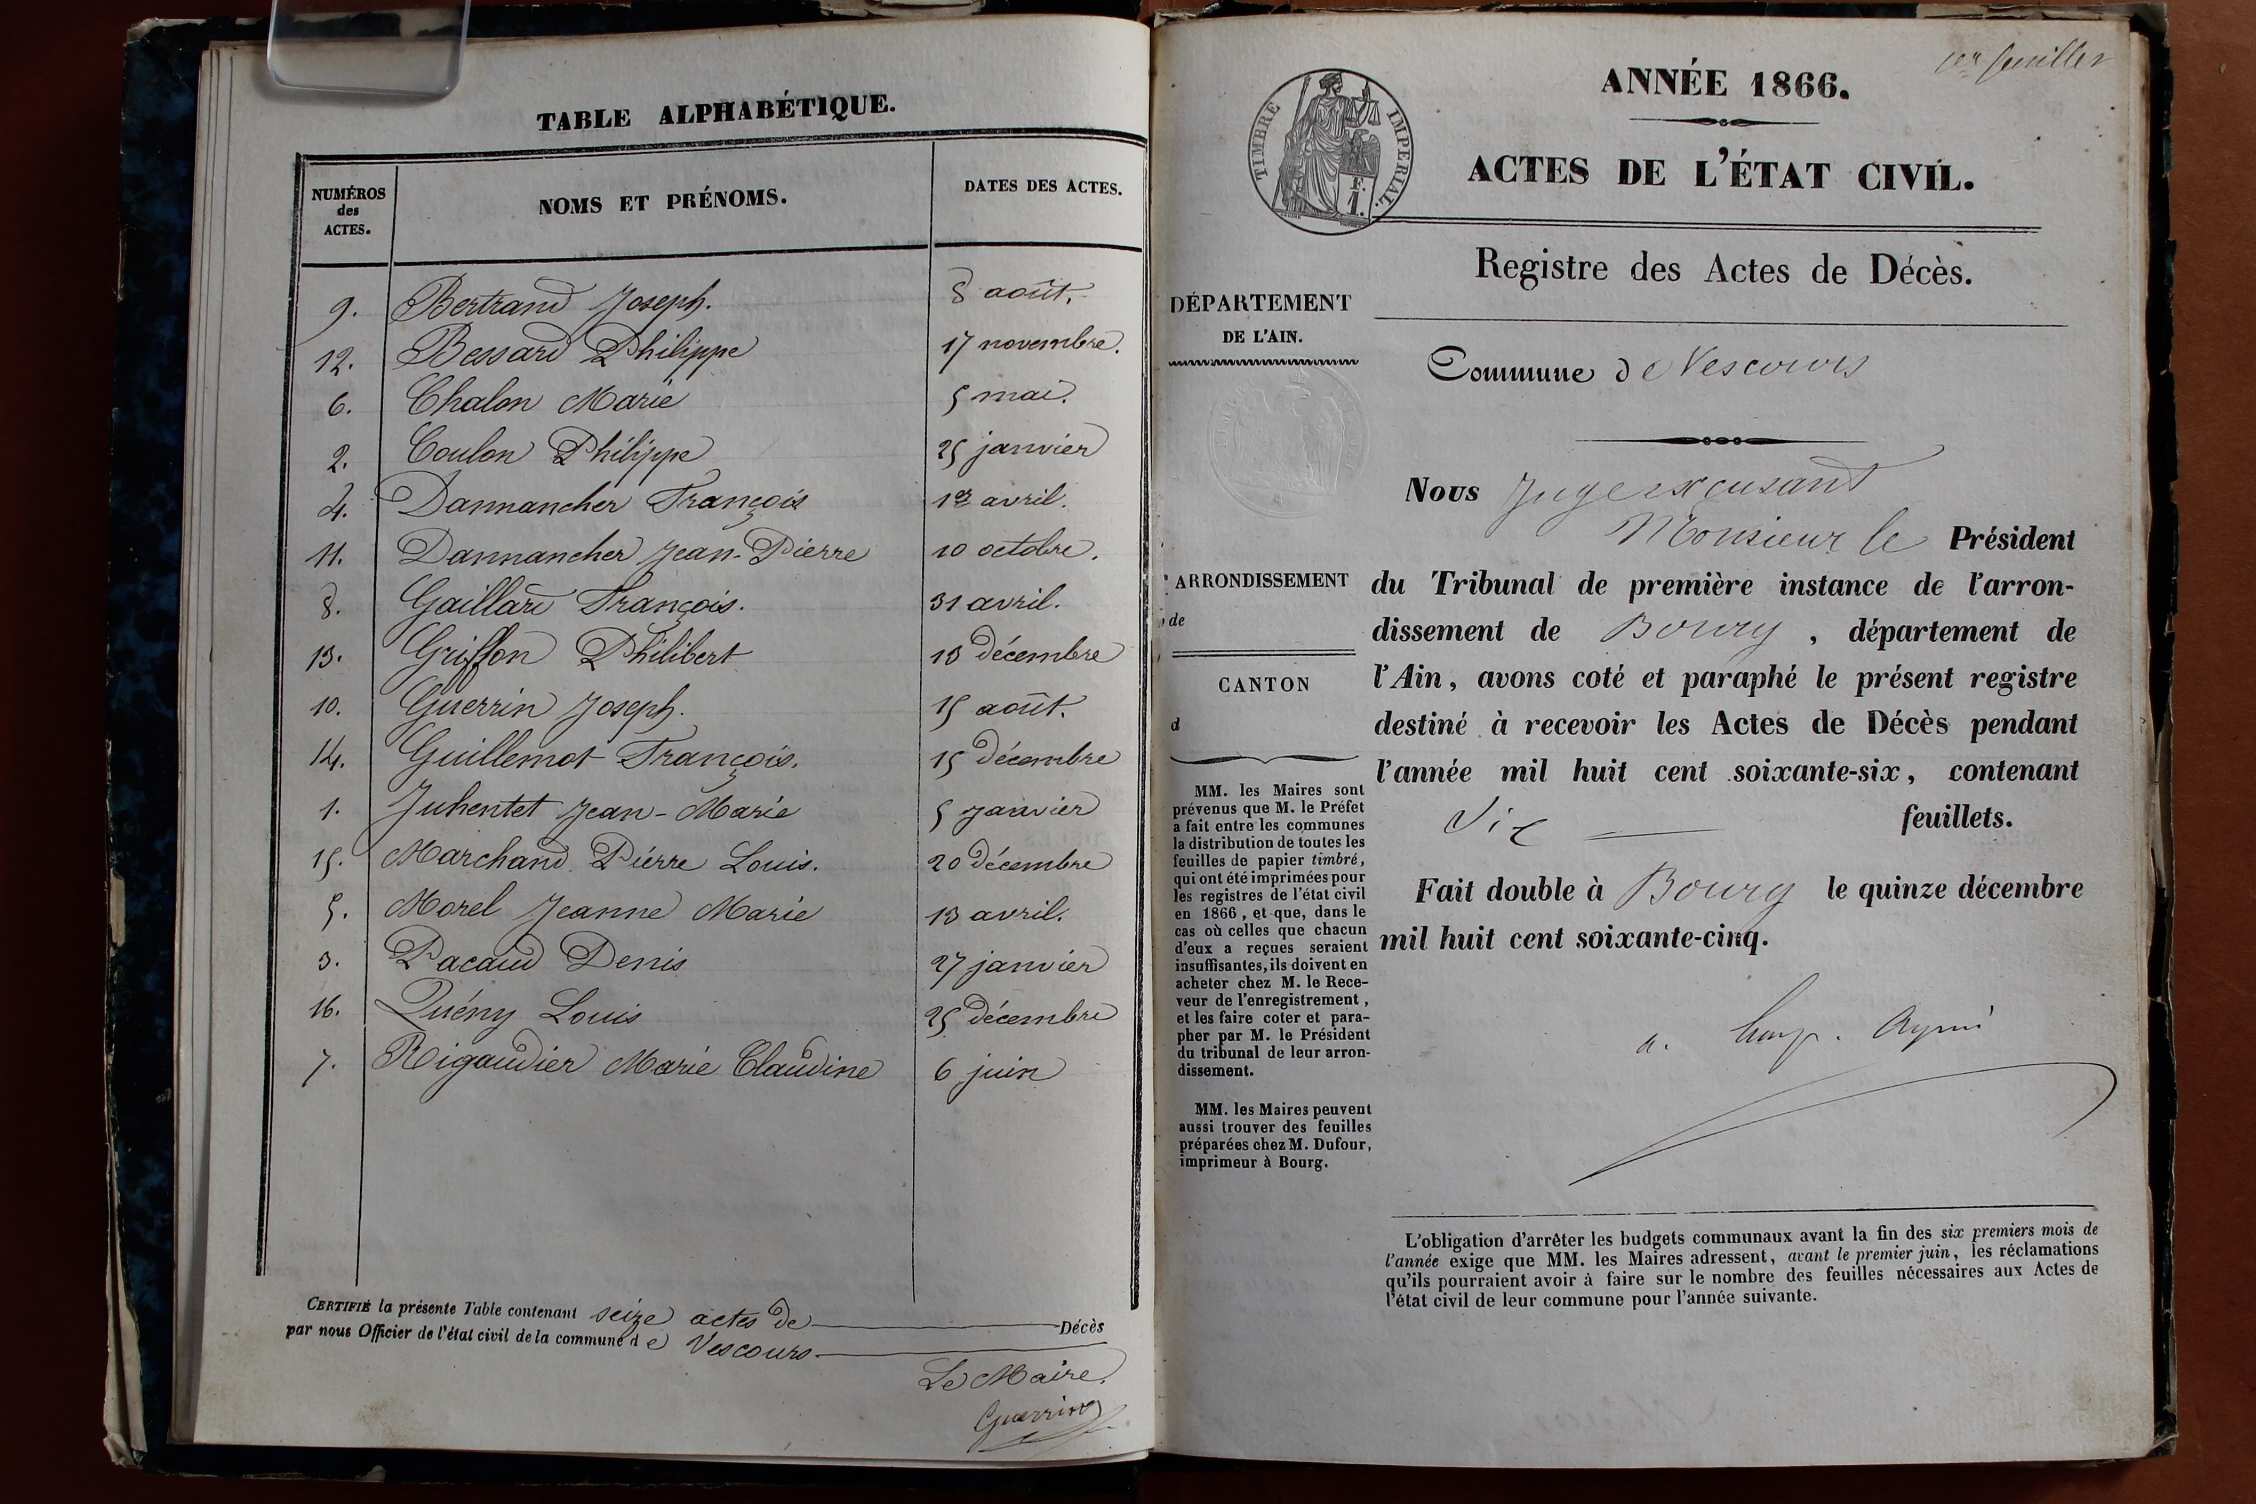 TABLE ALPHABÉTIQUE.
NUMÉROS des ACTES. NOMS ET PRÉNOMS. DATES DES ACTES.
9. Bertrand Joseph. 8 août.
12. Bessard Philippe 17 novembre.
6. Chalon Marie 5 mai.
2. Coulon Philippe 25 janvier
4. Dannancher François 1er avril.
11. Dannancher Jean-Pierre 10 octobre.
8. Gaillard François. 31 avril.
13. Griffon Philibert 13 décembre
10. Guerrin Joseph. 15 août.
14. Guillemot François. 15 décembre
1. Juhentet Jean-Marie 5 janvier
15. Marchand Pierre Louis. 20 décembre
5. Morel Jeanne Marie 13 avril.
3. Pacaud Denis 27 janvier
16. Quény Louis 25 décembre
7. Rigaudier Marie Claudine 6 juin
CERTIFIÉ la présente Table contenant seize actes de Décès
par nous Officier de l'état civil de la commune de Vescours
Le Maire.
Guerrin
1er feuillet
ANNÉE 1866.
TIMBRE IMPERIAL.
F. 1.
ACTES DE L'ÉTAT CIVIL.
Registre des Actes de Décès.
DÉPARTEMENT
DE L'AIN.
Commune de Vescours
ARRONDISSEMENT
de
CANTON
d
MM. les Maires sont
prévenus que M. le Préfet
a fait entre les communes
la distribution de toutes les
feuilles de papier timbré,
qui ont été imprimées pour
les registres de l'état civil
en 1866, et que, dans le
cas où celles que chacun
d'eux a reçues seraient
insuffisantes, ils doivent en
acheter chez M. le Rece-
veur de l'enregistrement,
et les faire coter et para-
pher par M. le Président
du tribunal de leur arron-
dissement.
MM. les Maires peuvent
aussi trouver des feuilles
préparées chez M. Dufour,
imprimeur à Bourg.
Nous Juge excusant
Monsieur le Président
du Tribunal de première instance de l'arron-
dissement de Bourg, département de
l'Ain, avons coté et paraphé le présent registre
destiné à recevoir les Actes de Décès pendant
l'année mil huit cent soixante-six, contenant
Six feuillets.
Fait double à Bourg le quinze décembre
mil huit cent soixante-cinq.
L'obligation d'arrêter les budgets communaux avant la fin des six premiers mois de
l'année exige que MM. les Maires adressent, avant le premier juin, les réclamations
qu'ils pourraient avoir à faire sur le nombre des feuilles nécessaires aux Actes de
l'état civil de leur commune pour l'année suivante.